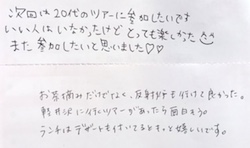 次回は20代のツアーに参加したいです
いい人はいなかったけどとっても楽しかった^^
また参加したいと思いました♡♡
お茶摘みだけでなく、反射炉も行けて良かった。
軽井沢に行くツアーがあったら面白そう。
ランチはデザートも付いてるともっと嬉しいです。